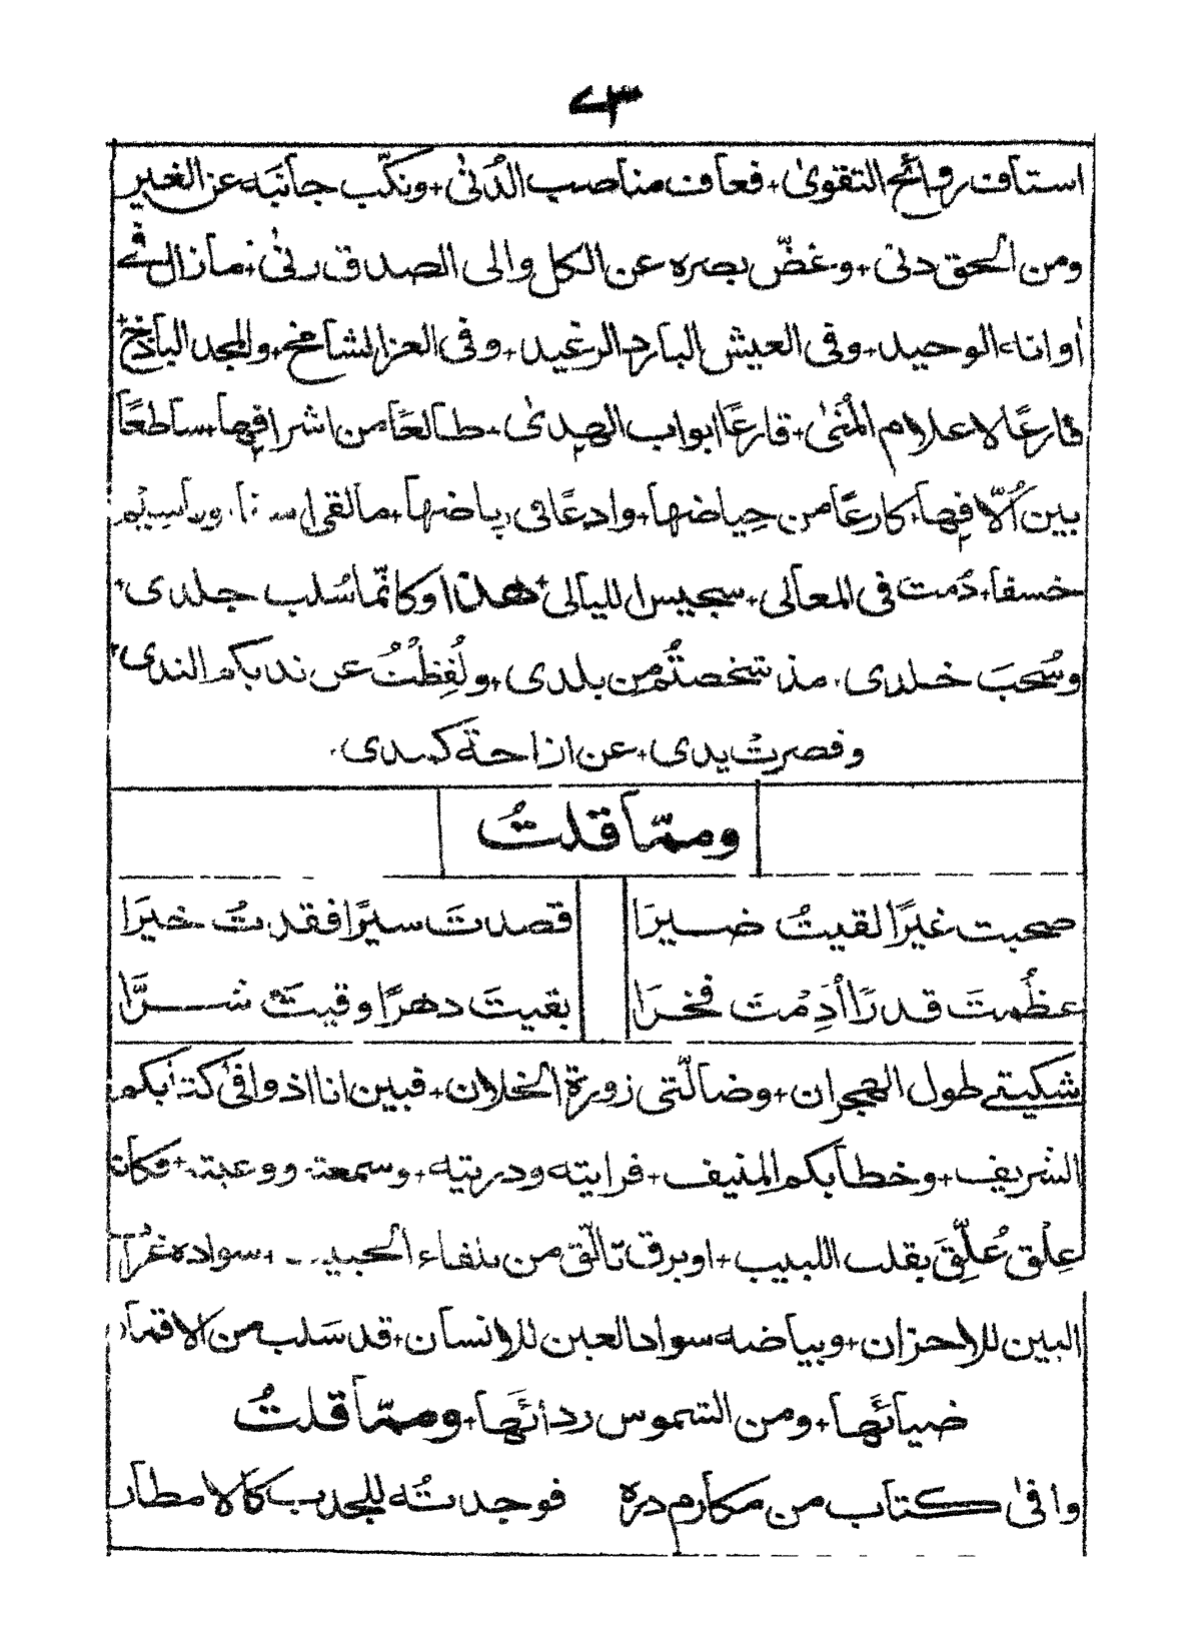 ٧٣
استاف روائح التقوىٰ + فعاف مناصب الدُنىٰ + ونكّب جانبه عن الغير
ومن الحق دنىٰ + وغضّ بصره عن الكل والى الصدق رنىٰ + مازال فى
أواناء الوحيد + وفى العيش البارد الرغيد + وفى العز الشامخ + والمجد الباذخ +
فارعًا لاعلام المُنىٰ + قارعًا ابواب الهدىٰ + طالعًا من اشرافها + ساطعًا
بين أُلّافها + كارعًا من حِياضها + وادعًا فى رياضها + مالقى
خسفا + دُمت فى المعالى + سجيس الليالى + هذا وكانّما سُلب جلدى +
وسُحبَ خلدى + مذ شخصتُم من بلدى + ولُفِظْتُ عن ندبكم الندى +
وقصرت يدى + عن ازاحة كمدى +
وممّا قلتُ
صحبت غيرًا لقيتُ ضيرَا قصدتَ سيرًا فقدتُ خيرَا
عظُمتَ قدرًا أدِمْتَ فخرَا بقيتَ دهرًا وقيتَ شرَّا
شكيتى طول الهجران + وضالّتى زورة الخلان + فبين انا اذ وافىٰ كتابكم
الشريف + وخطابكم المنيف + فرايته ودريته + وسمعته ووعيته + فكانه
عِلْق عُلّقَ بقلب اللبيب + اوبرق تالّق من تلقاء الحبيب + سواده غراب
البين للاحزان + وبياضه سواد العين للانسان + قد سَلب من الاقمار
ضيائَها + ومن الشموس ردائَها + وممّا قلتُ
وافىٰ كتاب من مكارم دره فوجدتُه للجدب كالامطار